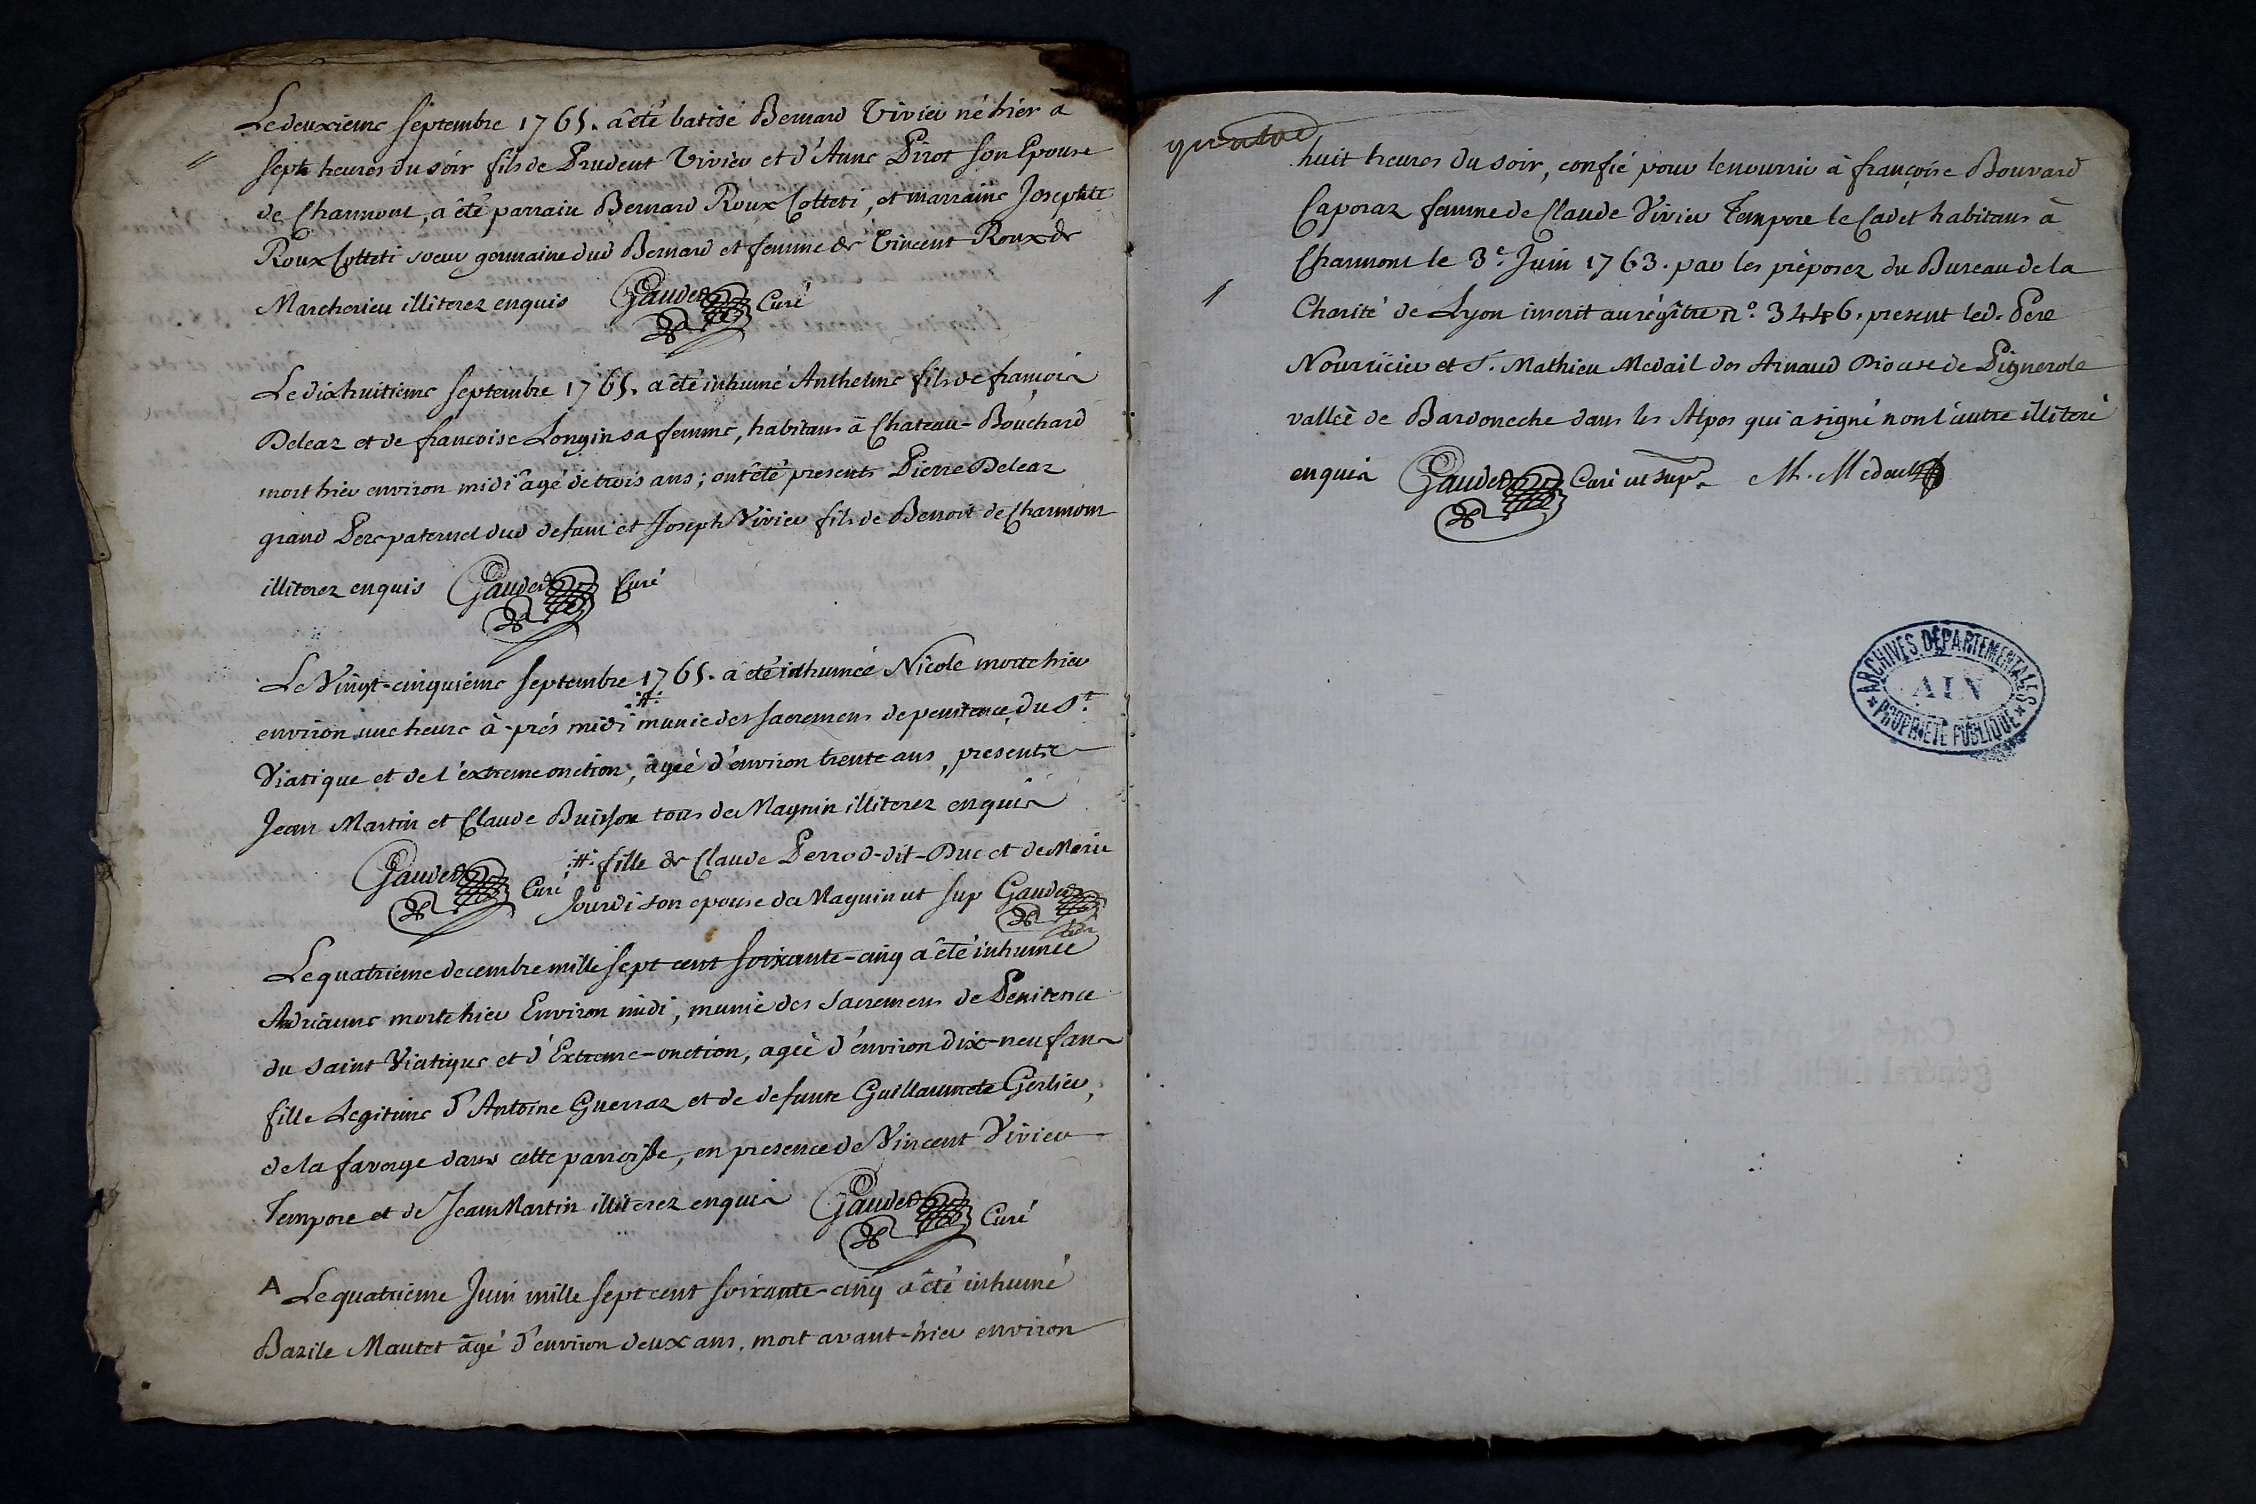 Le deuxieme septembre 1765. a êté batisé Bernard Vivier né hier a
sept heures du soir fils de Prudent Vivier et d'Anne Pirot son Epouse
de Charmont, a êté parrain Bernard Roux Cotteti, et marraine Josephte
Roux Cotteti soeur germaine dud Bernard et femme de Vincent Roux de
Marcherieu illiterez enquis Gaudet Curé
Le dixhuitieme septembre 1765. a êté inhumé Anthelme fils de françois
Deleaz et de francoise Longin sa femme, habitans à Chateau-Bouchard
mort hier environ midi âgé de trois ans; ont êté presents Pierre Deleaz
grand Pere paternel dud defunt et Joseph Vivier fils de Benoit de Charmont
illiterez enquis Gaudet Curé
Le Vingt-cinquieme septembre 1765. a êté inhumée Nicole morte hier
environ une heure à-prés midi .#. munie des sacremens de penitence, du St.
Viatique et de l'extreme onction, âgeé d'environ trente ans, presents
Jean Martin et Claude Buisson tous de Magnin illiterez enquis
Gaudet Curé .#. fille de Claude Perrod-dit-Duc et de Marie
Jourdi son epouse de Magnin ut sup Gaudet
Le quatrieme decembre mille sept cent soixante-cinq a êté inhumée
Adrianne morte hier Environ midi, munie des sacremens de Penitence
du saint Viatique et d'Extreme-onction, ageé d'environ dix-neuf ans
fille Legitime d'Antoine Guerraz et de defunte Guillaumete Gerlier,
de la favorge dans cette parroisse, en presence de Vincent Vivier
Tempore et de Jean Martin illiterez enquis Gaudet Curé
A Le quatrieme Juin mille sept cent soixante-cinq a êté inhumé
Bazile Mautet âgé d'environ deux ans, mort avant-hier environ
quatre
huit heures du soir, confié pour le nourrir à françoise Bouvard
Caporaz femme de Claude Vivier Tempore le Cadet habitans à
Charmont le 3e. Juin 1763. par les préposez du Bureau de la
Charité de Lyon inscrit au régitre no. 3446. present led. Pere
Nourricier et S. Mathieu Medail des Arnaud Diocese de Pignerole
valleè de Bardoneche dans les Alpes qui a signé non l'autre illiteré
enquis Gaudet Curé ut supr. M. Medail
ARCHIVES DÉPARTEMENTALES
AIN
PROPRIÉTÉ PUBLIQUE